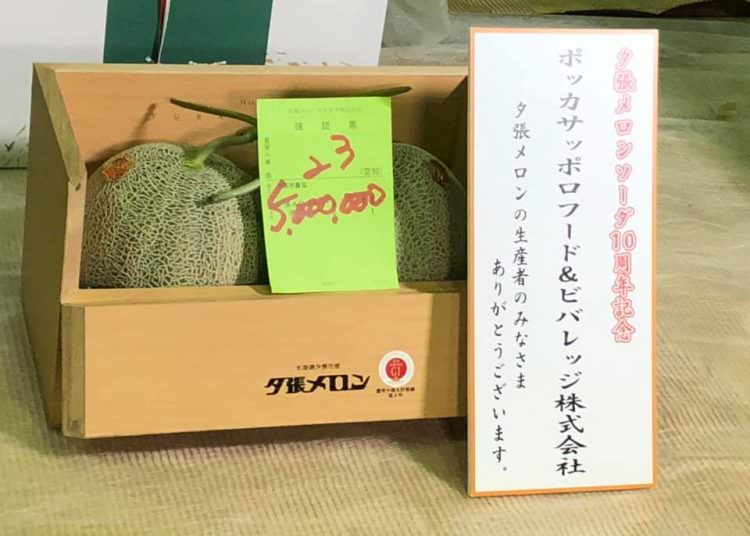 確認書
23
5,000,000
北海道夕張市産
夕張メロン
GI
夕張メロンソーダ10周年記念
ポッカサッポロフード&ビバレッジ株式会社
夕張メロンの生産者のみなさま
ありがとうございます。